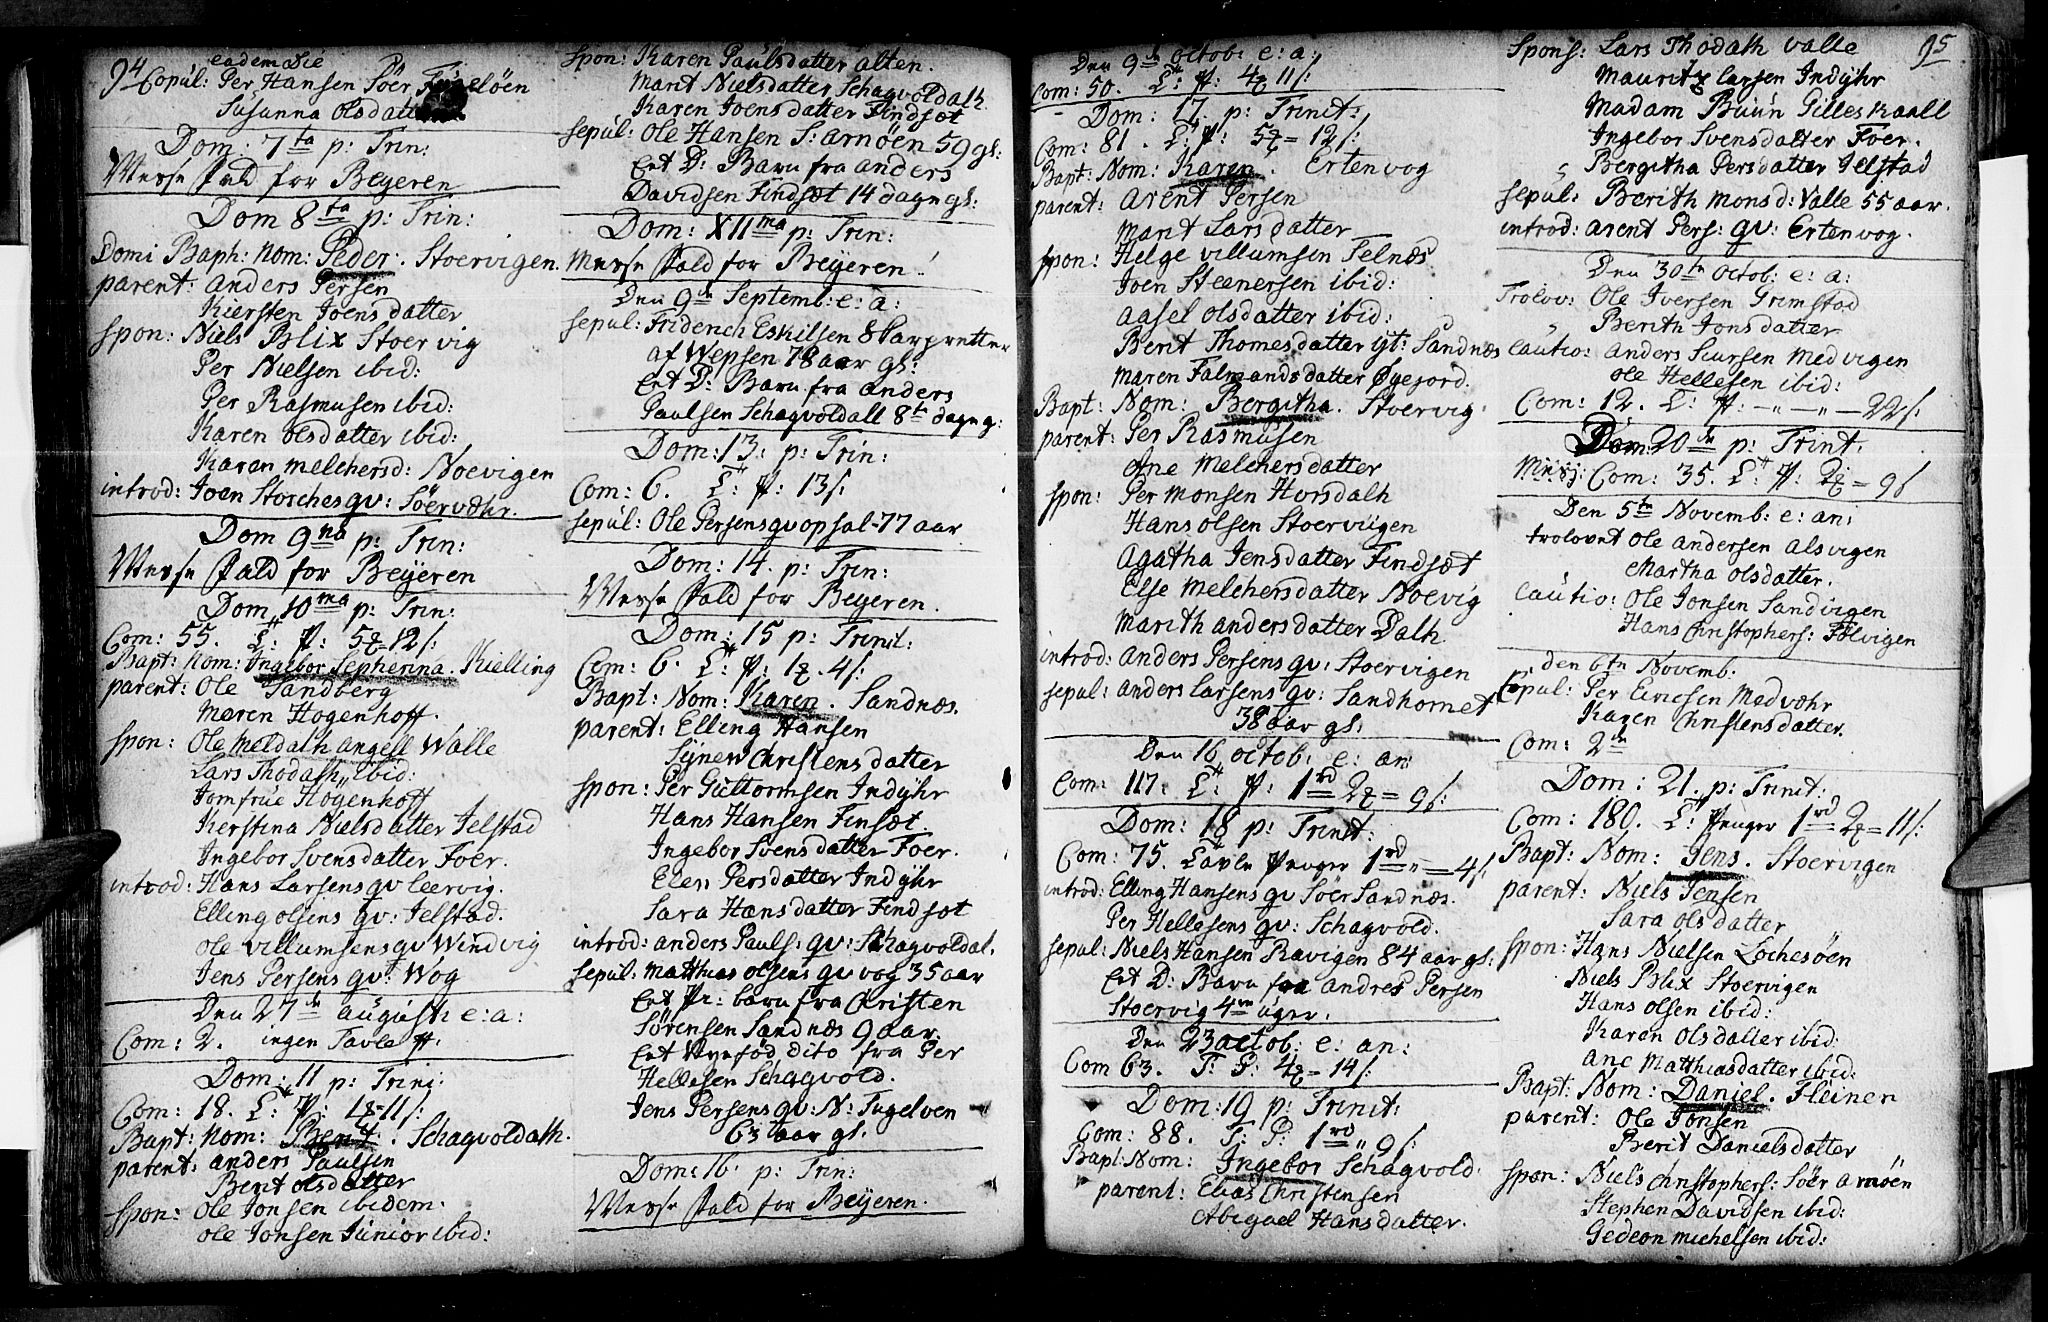 94
eadem die
Copul: Per Hansen Söer Fugelöen
Susanna Olsdatter
Dom: 7ta p: Trin:
Messe fald for Beyeren
Dom 8ta p: Trin:
Domi Baph: Nom: Peder. Stoervigen.
parent: Anders Persen
Kiersten Joensdatter
Spon: Niels Blix Stoervig
Per Nielsen ibid:
Per Rasmusen ibid:
Karen Olsdatter ibid:
Karen Melchersd: Noevigen
introd: Joen Storches qv: Söerværhr.
Dom 9na p: Trin:
Messe fald for Beyeren
Dom 10ma p: Trin:
Com: 55. L: P: 5 12 s:
Bapt: Nom: Ingebor Sepherina. Kielling
parent: Ole Sandberg
Maren Hogenhoff.
Spon: Ole Meldalh Angell Walle
Lars Thodalh ibid:
Jomfrue Hogenhoff
Kerstina Nielsdatter Jelstad
Ingebor Svensdatter Foer.
introd: Hans Larsens qv Leervig.
Elling Olsens qv: Jelstad.
Ole Villumsens qv Windvig
Jens Persens qv: Wog
Den 27de Augusti e: a:
Com: 2. ingen Tavle P.
Dom: 11 p: Trini:
Com: 18. L: P: 1 - 11 s:
Bapt: Nom: Berit. Schagvoldalh.
parent: Anders Paulsen
Berit Olsdatter
Spon: Ole Jonsen ibidem.
Ole Jonsen Junior ibid:
Spon: Karen Paulsdatter Alten.
Marit Nielsdatter Schagvoldalh.
Karen Joensdatter Findsæt
Sepul: Ole Hansen S: Arnöen 59 gl:
Eet D: Barn fra Anders
Davidsen Findsæt 14 dage gl:
Dom: XIIma p: Trin:
Messe fald for Beyeren.
Den 9de Septemb: e: a:
Sepul: Friderich Eskilsen
af Wepsen 78 aar gl:
Eet D: Barn fra Anders
Paulsen Schagvoldall 8te dage g:
Dom: 13: p: Trin:
Com: 6. L: P: 13 s:
Sepul: Ole Persens qv opsal - 77 aar
Dom: 14. p: Trin:
Messe fald for Beyeren.
Dom: 15 p: Trinit:
Com: 6. L: P: 1. 4 s:
Bapt: Nom: Karen. Sandnæs.
parent: Elling Hansen
Synev Christensdatter
Spon: Per Guttormsen Indyhr
Hans Hansen Finsæt
Ingebor Svensdatter Foer.
Elen Persdatter Indyhr
Sara Hansdatter Findsæt
introd: Anders Pauls: qv: Schagvoldal.
Sepul: Matthias Olsens qv Vog 35 aar
Eet Pi: barn fra Christen
Sörensen Sandnæs 9 aar.
Eet Nyefød dito fra Per
Hellesen Schagvold.
Jens Persens qv: N: Fugelöen
63 aar gl.
Dom: 16. p: Trin:
Messe fald for Beyeren.
Den 9de Octob: e: a:
Com: 50. L: P: 4 11 s:
Dom: 17. p: Trinit:
Com: 81. L: P: 5 = 12 s:
Bapt: Nom: Karen. Ertenvog
parent: Arent Persen
Marit Larsdatter
Spon: Helge Villumsen Selnæs
Joen Steenersen ibid:
Aasel Olsdatter ibid:
Berit Thomesdatter igt: Sandnæs
Maren Falmandsdatter Øgejord.
Bapt: Nom: Bergitha. Stoervig.
parent: Per Rasmusen
Ane Melchersdatter
Spon: Per Monsen Horsdalh
Hans Olsen Stoervigen
Agatha Jensdatter Findsæt
Else Melchersdatter Noevig
Marith Andersdatter Dalh.
introd: Anders Persens qv: Stoervigen
Sepul: Anders Larsens qv: Sandhornet
38 aar gl:
Den 16 octob: e: an:
Com: 117: L: P: 1rd 2 = 9 s:
Dom: 18 p: Trinit:
Com: 75. Tavle Penger 1rd = 4 s:
introd: Elling Hansens qv Söer Sandnæs.
Per Hellesens qv: Schagvold.
Sepul: Niels Hansen Ravigen 84 aar gl:
Eet D: Barn fra Andres Persen
Stoervig 4re uger.
Den 23 octob: e: an:
Com 63. T: P: 4 = 14 s:
Dom: 19 p: Trinit:
Com: 88. T: P: 1rd 9 s:
Bapt: Nom: Ingebor Schagvold.
parent: Elias Christensen
Abigael Hansdatter.
95
Spons: Lars Thodalh Valle
Mauritz Larsen Indyhr
Madam Buun Gilleskaall
Ingebor Svensdatter Foer.
Bergitha Persdatter Jelstad
Sepul: Berith Monsd: Valle 55 aar.
introd: Arent Pers: qv: Ertenvog.
Den 30te octob: e: a:
Trolov: Ole Iversen Grimstad
Berith Jonsdatter
Cautio: Anders Siursen Medvigen
Ole Hellesen ibid:
Com: 12. L: P: - " - " - 22 s:
Dom: 20de p: Trint.
Com: 35. L: P: 2 = 9 s
Den 5te Novemb: e: an:
trolovet Ole Andersen Alsvigen
Martha Olsdatter.
Cautio: Ole Jonsen Sandvigen
Hans Christophers: Følvigen
den 6te Novemb:
Copul: Per Einesen Medvæhr
Karen Christensdatter.
Com: 2de
Dom: 21. p: Trinit:
Com: 180. L: Penger 1rd 2 = 11 s:
Bapt: Nom: Jens. Stoervigen
parent: Niels Jensen
Sara Olsdatter
Spon: Hans Nielsen Lochesöen
Niels Blix Stoervigen
Hans Olsen ibid:
Karen Olsdatter ibid:
Ane Matthiasdatter ibid:
Bapt: Nom: Daniel. Fleinen
parent: Ole Jonsen
Berit Danielsdatter
Spon: Niels Christophers: Söer Arnöen
Stephen Davidsen ibid:
Gedeon Michelsen ibid: